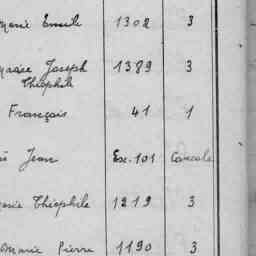 Marie Emile 1302 3
Joseph 1389 3
Théophile
François 41 1
Jean Exc. 101 Cancale
Marie Théophile 1219 3
Marie Pierre 1190 3